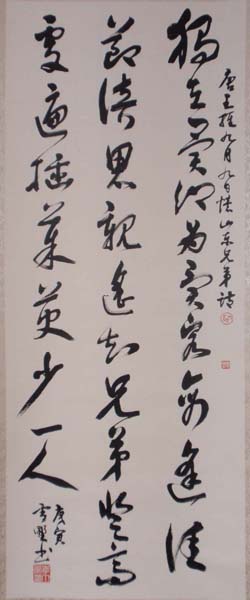 唐王維九月九日憶山東兄弟詩
獨在異鄉為異客每逢佳
節倍思親遙知兄弟登高
處遍插茱萸少一人
庚寅
書